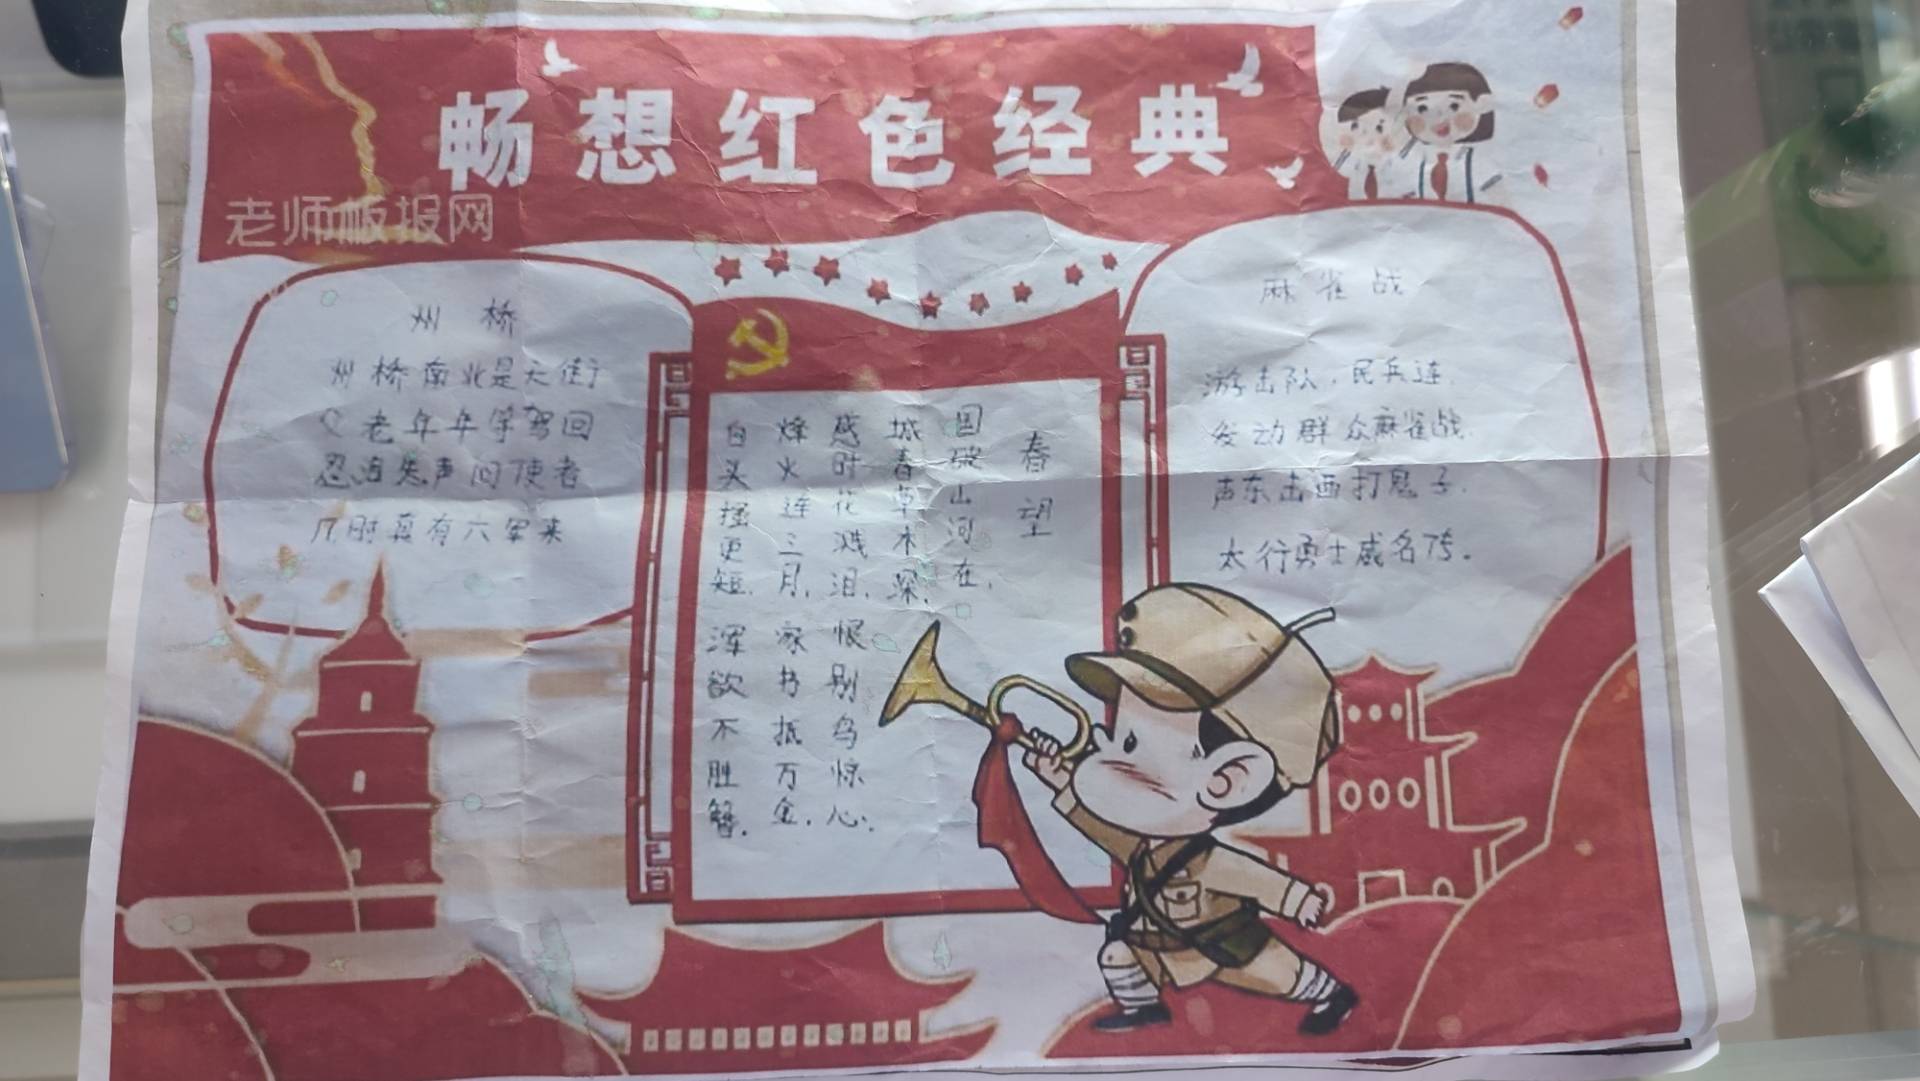 畅想红色经典
老师板报网
州 桥
州桥南北是天街
父老年年等驾回
忍泪失声问使者
几时真有六军来
春望
国破山河在,
城春草木深,
感时花溅泪,恨别鸟惊心.
烽火连三月,家书抵万金.
白头搔更短,浑欲不胜簪.
麻雀战
游击队,民兵连,
发动群众麻雀战,
声东击西打鬼子,
太行勇士威名传。